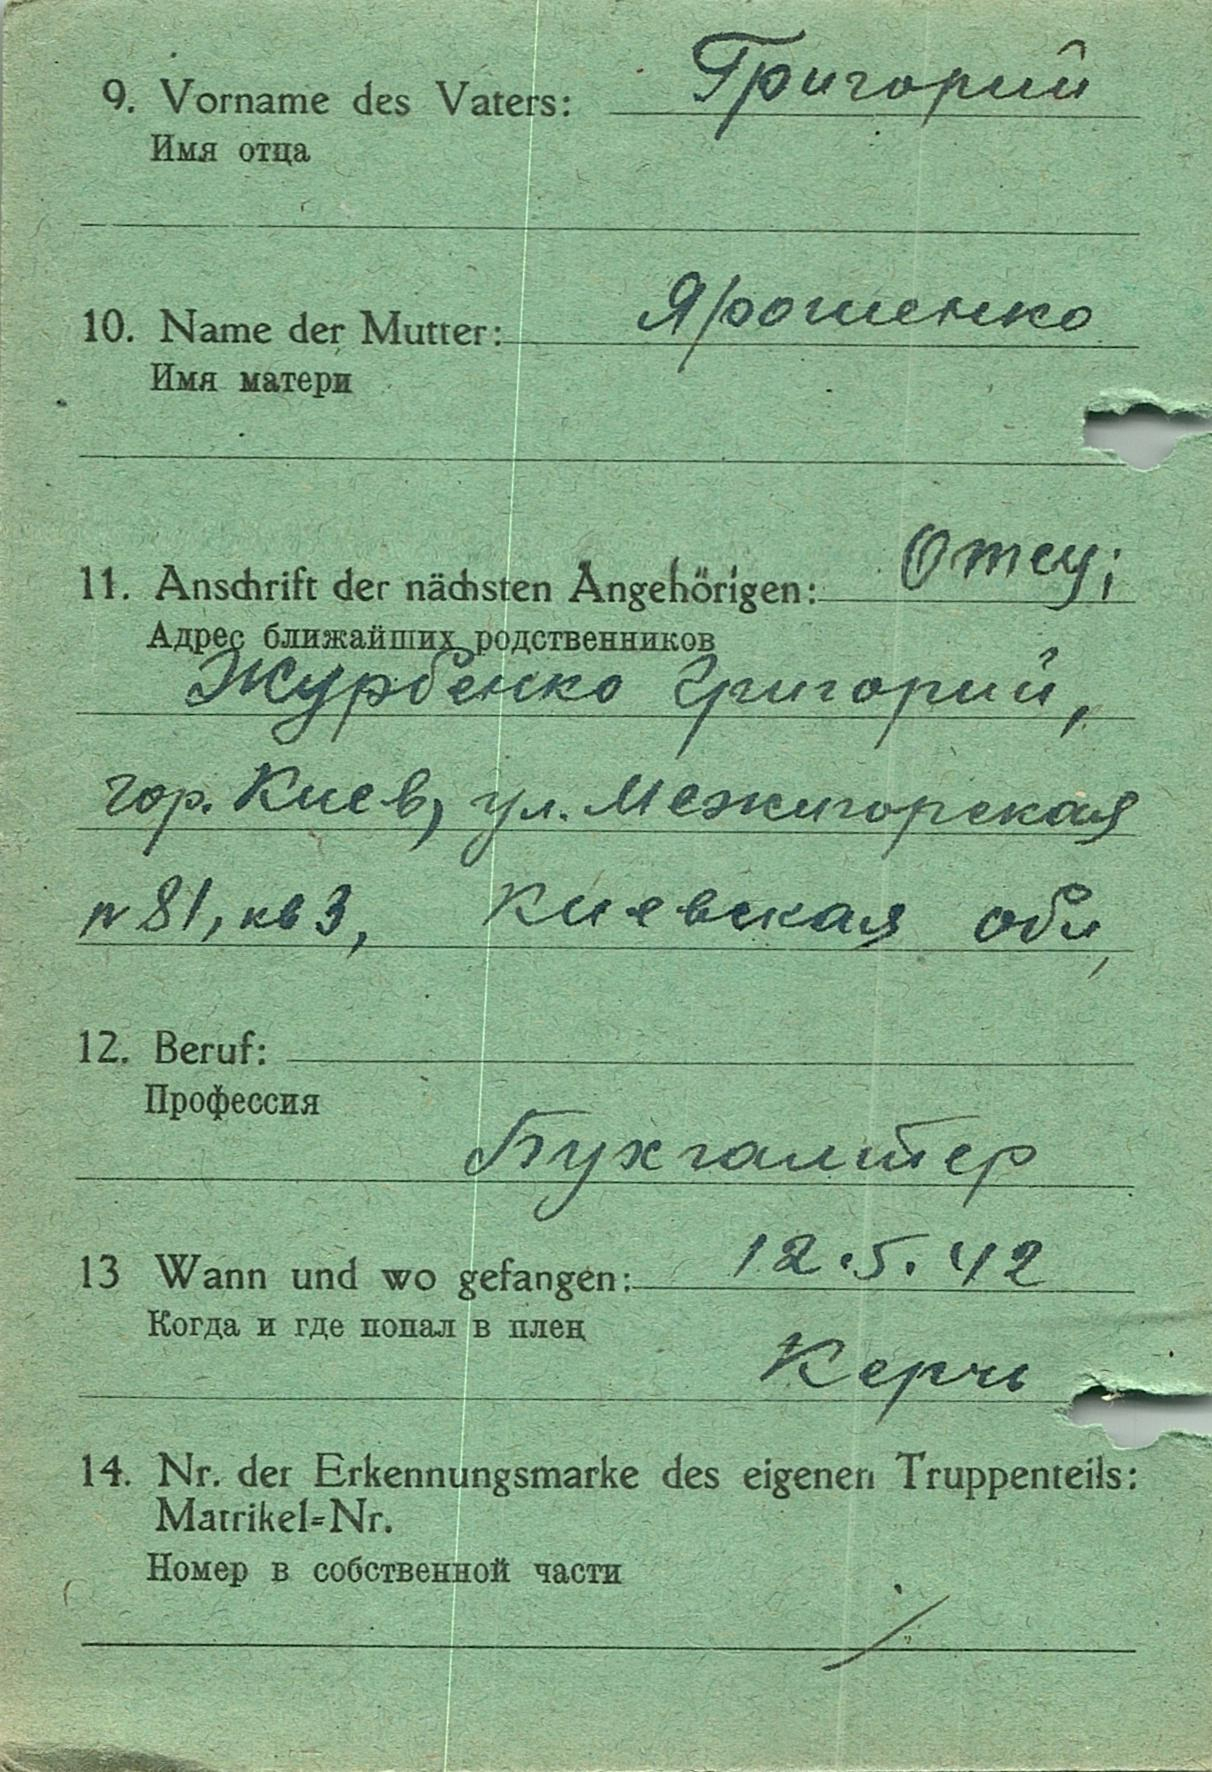 9. Vorname des Vaters: Григорий
Имя отца
10. Name der Mutter: Ярошенко
Имя матери
11. Anschrift der nächsten Angehörigen: Отцу;
Адрес ближайших родственников
Журбенко Григорий,
гор. Киев, ул. Межигорская
n 81, кв 3, Киевская обл,
12. Beruf:
Профессия
Бухгалтер
13 Wann und wo gefangen: 12.5.42
Когда и где попал в плен
Керчь
14. Nr. der Erkennungsmarke des eigenen Truppenteils:
Matrikel=Nr.
Номер в собственной части
/